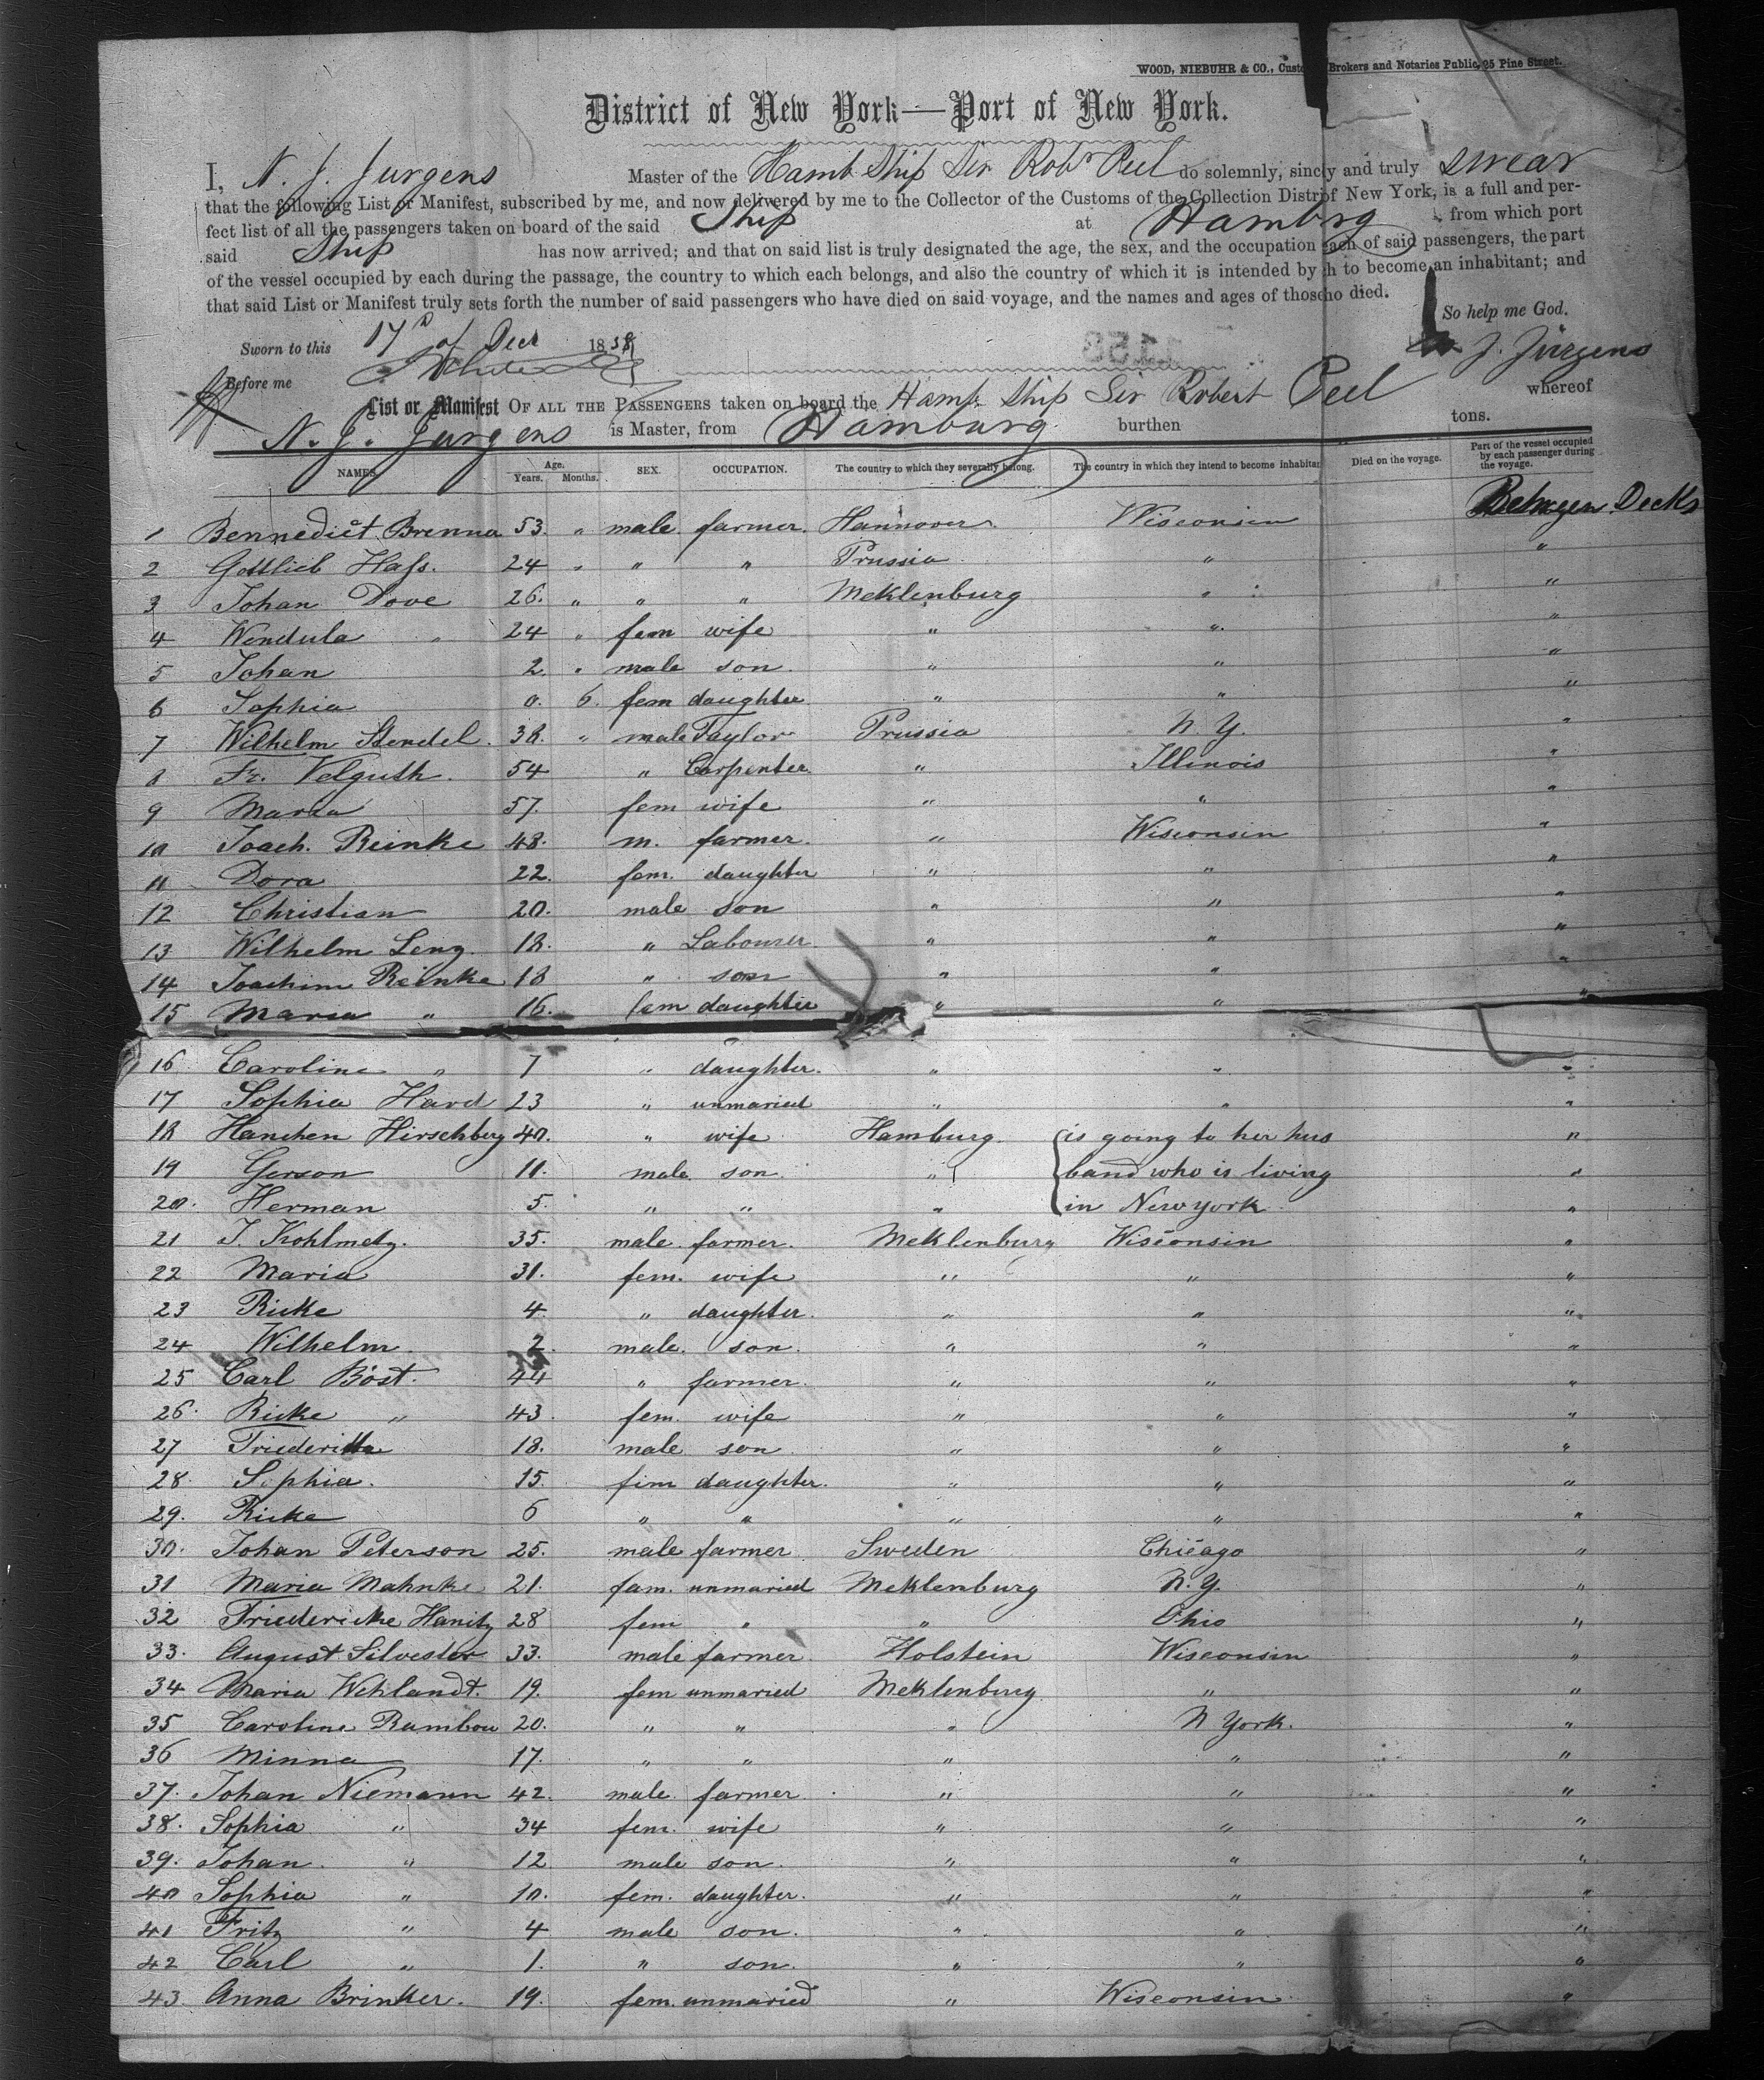 WOOD, NIEBUHR & CO., Custo Brokers and Notaries Public, 25 Pine Street.
District of New York—Port of New York.
I, N. J. Jurgens Master of the Hamb Ship Sir Robt Peel do solemnly, sincly and truly swear
that the following List or Manifest, subscribed by me, and now delivered by me to the Collector of the Customs of the Collection Distr of New York, is a full and per-
fect list of all the passengers taken on board of the said Ship at Hamburg from which port
said Ship has now arrived; and that on said list is truly designated the age, the sex, and the occupation each of said passengers, the part
of the vessel occupied by each during the passage, the country to which each belongs, and also the country of which it is intended by h to become an inhabitant; and
that said List or Manifest truly sets forth the number of said passengers who have died on said voyage, and the names and ages of those ho died.
So help me God.
Sworn to this 17th of Decr 1858
J. Jürgens
Before me
List or Manifest OF ALL THE PASSENGERS taken on board the Hamb. Ship Sir Robert Peel whereof
N. J. Jurgens is Master, from Hamburg burthen tons.
NAMES. Age. Years. Months. SEX. OCCUPATION. The country to which they severally belong. The country in which they intend to become inhabitan Died on the voyage. Part of the vessel occupied by each passenger during the voyage.
1 Bennedict Brenna 53. " male farmer. Hannover. Wisconsin Between Decks
2 Gottlieb Hass. 24 " " " Prussia " "
3 Johan Dove 26. " " " Meklenburg " "
4 Wendula " 24 " fem wife " " "
5 Johan 2. " male son. " " "
6 Sophia 0. 6. fem daughter " " "
7 Wilhelm Stendel. 38. " male Taylor Prussia N. Y. "
8 Fr. Velguth. 54 " Carpenter " Illinois "
9 Maria 57. fem wife " " "
10 Joach. Reinke 48. m. farmer. " Wisconsin "
11 Dora 22. fem. daughter " " "
12 Christian 20. male son " " "
13 Wilhelm Leng. 18. " Labourer " " "
14 Joachim Reinke 18 " son " " "
15 Maria " 16. fem daughter " " "
16 Caroline " 7 " daughter. " " "
17 Sophia Hard 23 " unmaried " " "
18 Hanchen Hirschberg 40. " wife Hamburg. is going to her hus "
19 Gerson 11. male son. " band who is living "
20. Herman 5. " " " in New york "
21 J. Kohlmetz. 35. male farmer. Meklenburg Wisconsin "
22 Maria 31. fem. wife " " "
23 Rieke 4. " daughter. " " "
24 Wilhelm. 2. male. son. " " "
25 Carl Böst. 44 " farmer. " " "
26. Rieke " 43. fem. wife " " "
27 18. male son " " "
28. Sophia. 15. fem daughter. " " "
29. Rieke 6 " " " " "
30. Johan Peterson 25. male farmer Sweden Chicago "
31 Maria Mahnke 21. fem. unmaried Meklenburg N. Y. "
32 Friedericke Hanitz 28 fem " " Ohio "
33. August Silvester 33. male farmer. Holstein Wisconsin "
34 Maria Wehlandt. 19. fem unmaried Meklenburg " "
35 Caroline Rambow 20. " " " N York. "
36 Minna 17. " " " " "
37. Johan Niemann 42. male farmer. " " "
38. Sophia " 34 fem. wife " " "
39. Johan. " 12 male son. " " "
40 Sophia " 10. fem. daughter. " " "
41 Fritz " 4 male son. " " "
42 Carl " 1. " son. " " "
43 Anna Brinker. 19. fem. unmaried " Wisconsin "